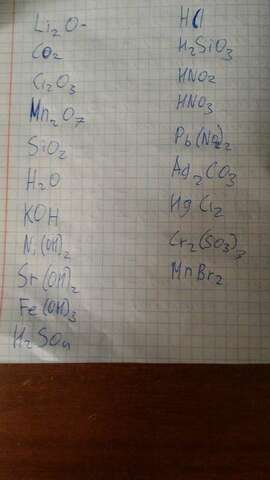 Li₂O-
CO₂
Cl₂O₃
Mn₂O₇
SiO₂
H₂O
KOH
Ni(OH)₂
Sr(OH)₂
Fe(OH)₃
H₂SO₄
HCl
H₂SiO₃
HNO₂
HNO₃
Pb(NO₂)₂
Ag₂CO₃
HgCl₂
Cr₂(SO₃)₃
MnBr₂